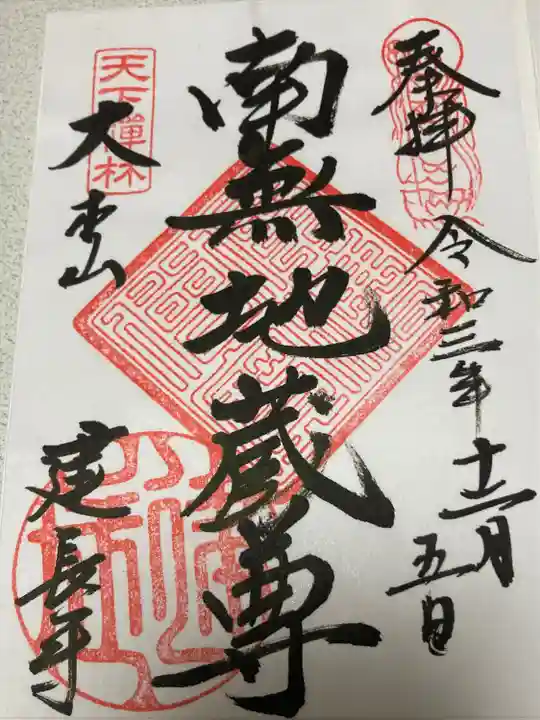 奉拝
令和三年十二月五日
南無地蔵尊
天下禅林
大本山
建長寺